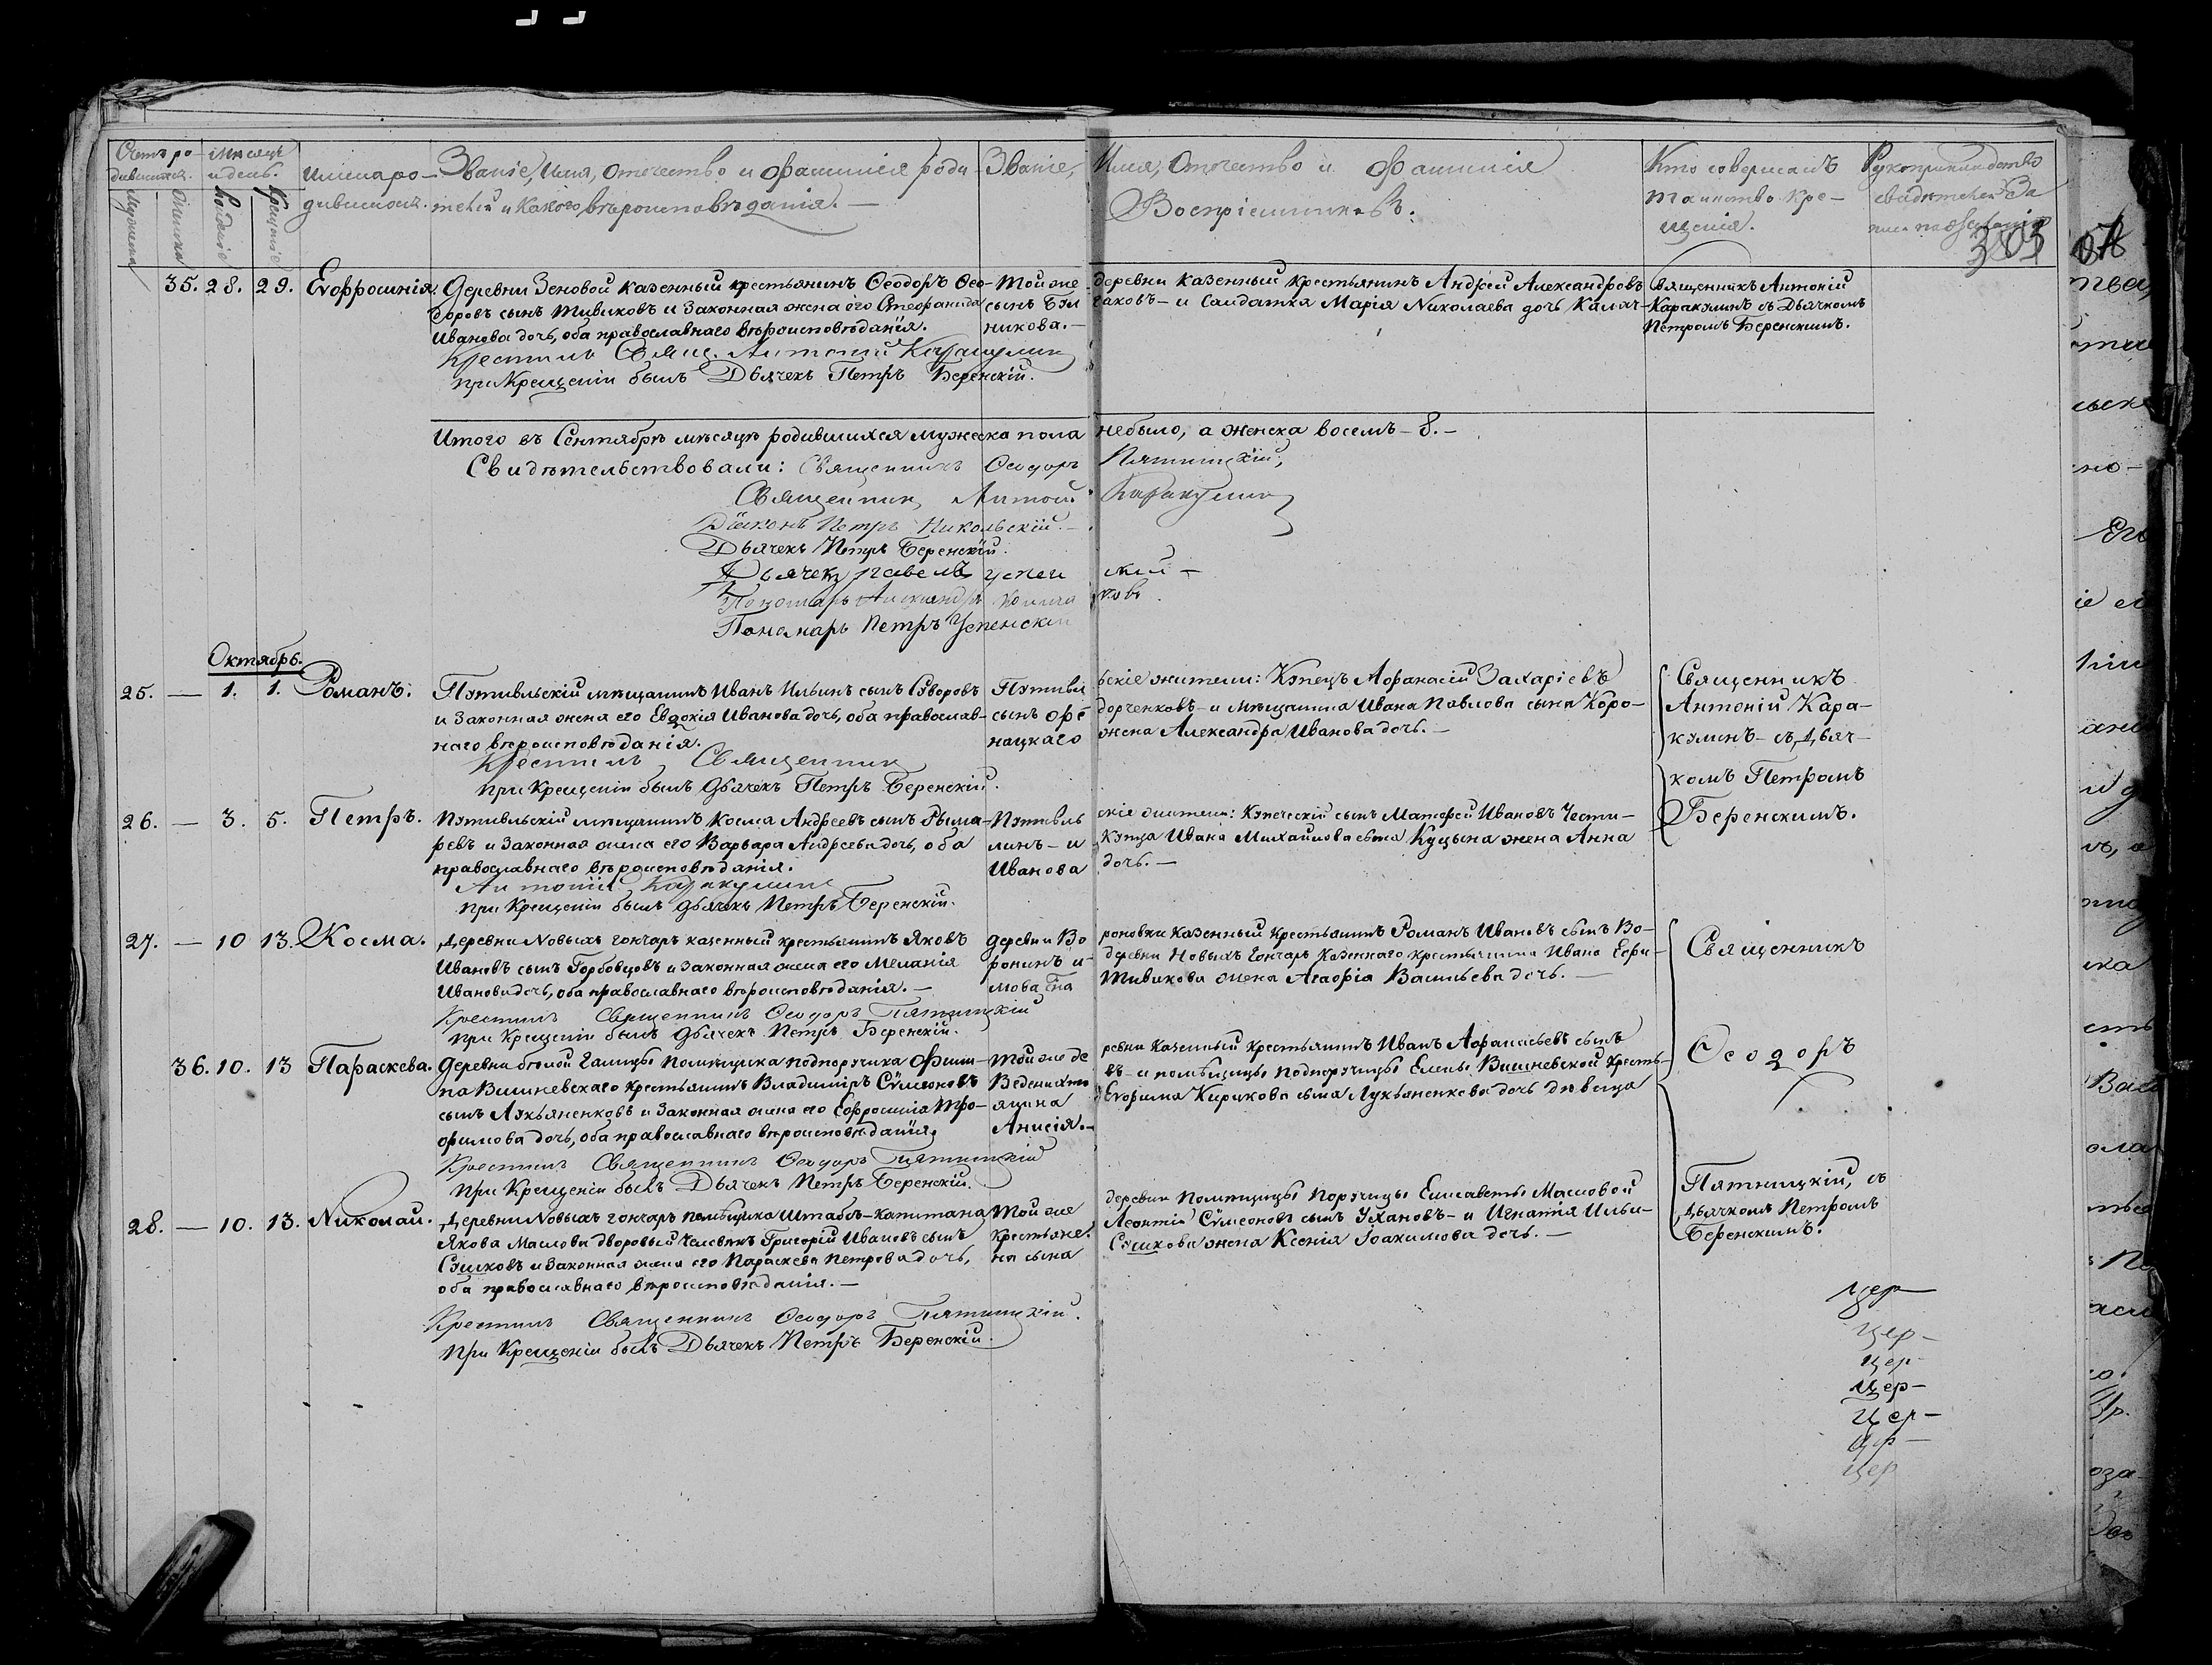 Счетъ ро-
дившихся.
Мѣсяцъ
и день.
Мужеска
Женска
Рожденіе
Крещеніе
Имена ро-
дившихся.
Званіе, Имя, Отечество и Фамилія роди-
телей и какого вѣроисповѣданія. —
Званіе, Имя, Отечество и Фамилія
Воспріемниковъ.
Кто совершалъ
таинство Кре-
щенія.
Рукоприкладство
свидѣтелей За
303
35. 28. 29. Евфросинія.
Деревни Зеновой казенный крестьянинъ Ѳеодоръ Ѳео-
доровъ сынъ Тивиковъ и Законная жена его Стефанида
Иванова дочь, оба православнаго вѣроисповѣданія.
Той же деревни казенный крестьянинъ Андрей Александровъ
сынъ и Салдатка Марія Николаева дочь
никова. —
Священникъ Антоній
Каракулинъ съ Дьячкомъ
Петромъ Беренскимъ.
Крестилъ Свящ. Антоній Каракулинъ
при Крещеніи былъ Дьячекъ Петръ Беренскій.
Итого въ Сентябрѣ мѣсяцѣ родившихся мужеска пола небыло, а женска восемь – 8. –
Свидѣтельствовали: Священникъ Ѳеодоръ Пятницкій,
Священникъ Антоній Каракулинъ
Діаконъ Петръ Никольскій. –
Дьячекъ Петръ Беренскій.
Дьячекъ Павелъ Успенскій –
Пономарь Александръ
Пономарь Петръ Успенскій
Октябрь.
25. — 1. 1. Романъ.
Путивльскій мѣщанинъ Иванъ Ильинъ сынъ Суворовъ
и Законная жена его Евдокія Иванова дочь, оба православ-
наго вѣроисповѣданія.
Путивльскіе жители: Купецъ Аѳанасій Захаріевъ
сынъ Ѳедорченковъ – и мѣщанина Ивана Павлова сына Коро-
нацкаго жена Александра Иванова дочь. —
Священникъ
Антоній Кара-
кулинъ – съ Дьяч-
комъ Петромъ
Беренскимъ.
Крестилъ Священникъ
при Крещеніи былъ Дьячекъ Петръ Беренскій.
26. — 3. 5. Петръ.
Путивльскій мѣщанинъ Косма Андреевъ сынъ Рыма-
ревъ и Законная жена его Варвара Андреева дочь, оба
православнаго вѣроисповѣданія.
Путивльскіе жители: Купеческій сынъ Матѳей Ивановъ Чести-
линъ – и Купца Ивана Михайлова сына Куцына жена Анна
Иванова дочь. —
Антоній Каракулинъ
при Крещеніи былъ Дьячекъ Петръ Беренскій.
27. — 10 13. Косма.
Деревни Новыхъ Гончаръ казенный крестьянинъ Яковъ
Ивановъ сынъ Горбовцовъ и Законная жена его Меланія
Иванова дочь, оба православнаго вѣроисповѣданія. —
деревни Вороновки Казенный крестьянинъ Романъ Ивановъ сынъ Во-
ронинъ и деревни Новыхъ Гончаръ Казеннаго крестьянина Ивана Ефи-
мова сына Тивикова жена Агафія Васильева дочь. —
Священникъ
Ѳеодоръ
Пятницкій, съ
Дьячкомъ Петромъ
Беренскимъ.
Крестилъ Священникъ Ѳеодоръ Пятницкій
при Крещеніи былъ Дьячекъ Петръ Беренскій.
36. 10. 13 Параскева.
Деревни бѣлой Галицы Помѣщика подпоручика Филип-
па Вишневскаго крестьянинъ Владиміръ Сѵмеоновъ
сынъ Лукьяненковъ и Законная жена его Евфросинія Тро-
фимова дочь, оба православнаго вѣроисповѣданія.
Той же деревни Казенный крестьянинъ Иванъ Аѳанасьевъ сынъ
и помѣщицы подпоручицы Елены Вишневской кресть-
янина Егорима Кирикова сына Лукьяненкова дочь дѣвица
Анисія. –
Крестилъ Священникъ Ѳеодоръ Пятницкій
при Крещеніи былъ Дьячекъ Петръ Беренскій.
28. — 10. 13. Николай.
Деревни Новыхъ Гончаръ помѣщика Штабсъ-капитана
Якова Маслова дворовый человѣкъ Григорій Ивановъ сынъ
Сушковъ и Законная жена его Параскева Петрова дочь,
оба православнаго вѣроисповѣданія. —
Той же деревни Помѣщицы Поручицы Елисаветы Масловой
крестьяне: Леонтій Сѵмеоновъ сынъ Ухановъ – и Игнатія Ильи-
на сына Сушкова жена Ксенія Іоакимова дочь. —
Крестилъ Священникъ Ѳеодоръ Пятницкій.
при Крещеніи былъ Дьячекъ Петръ Беренскій.
цер –
цер –
цер –
цер –
цер –
цер –
цер